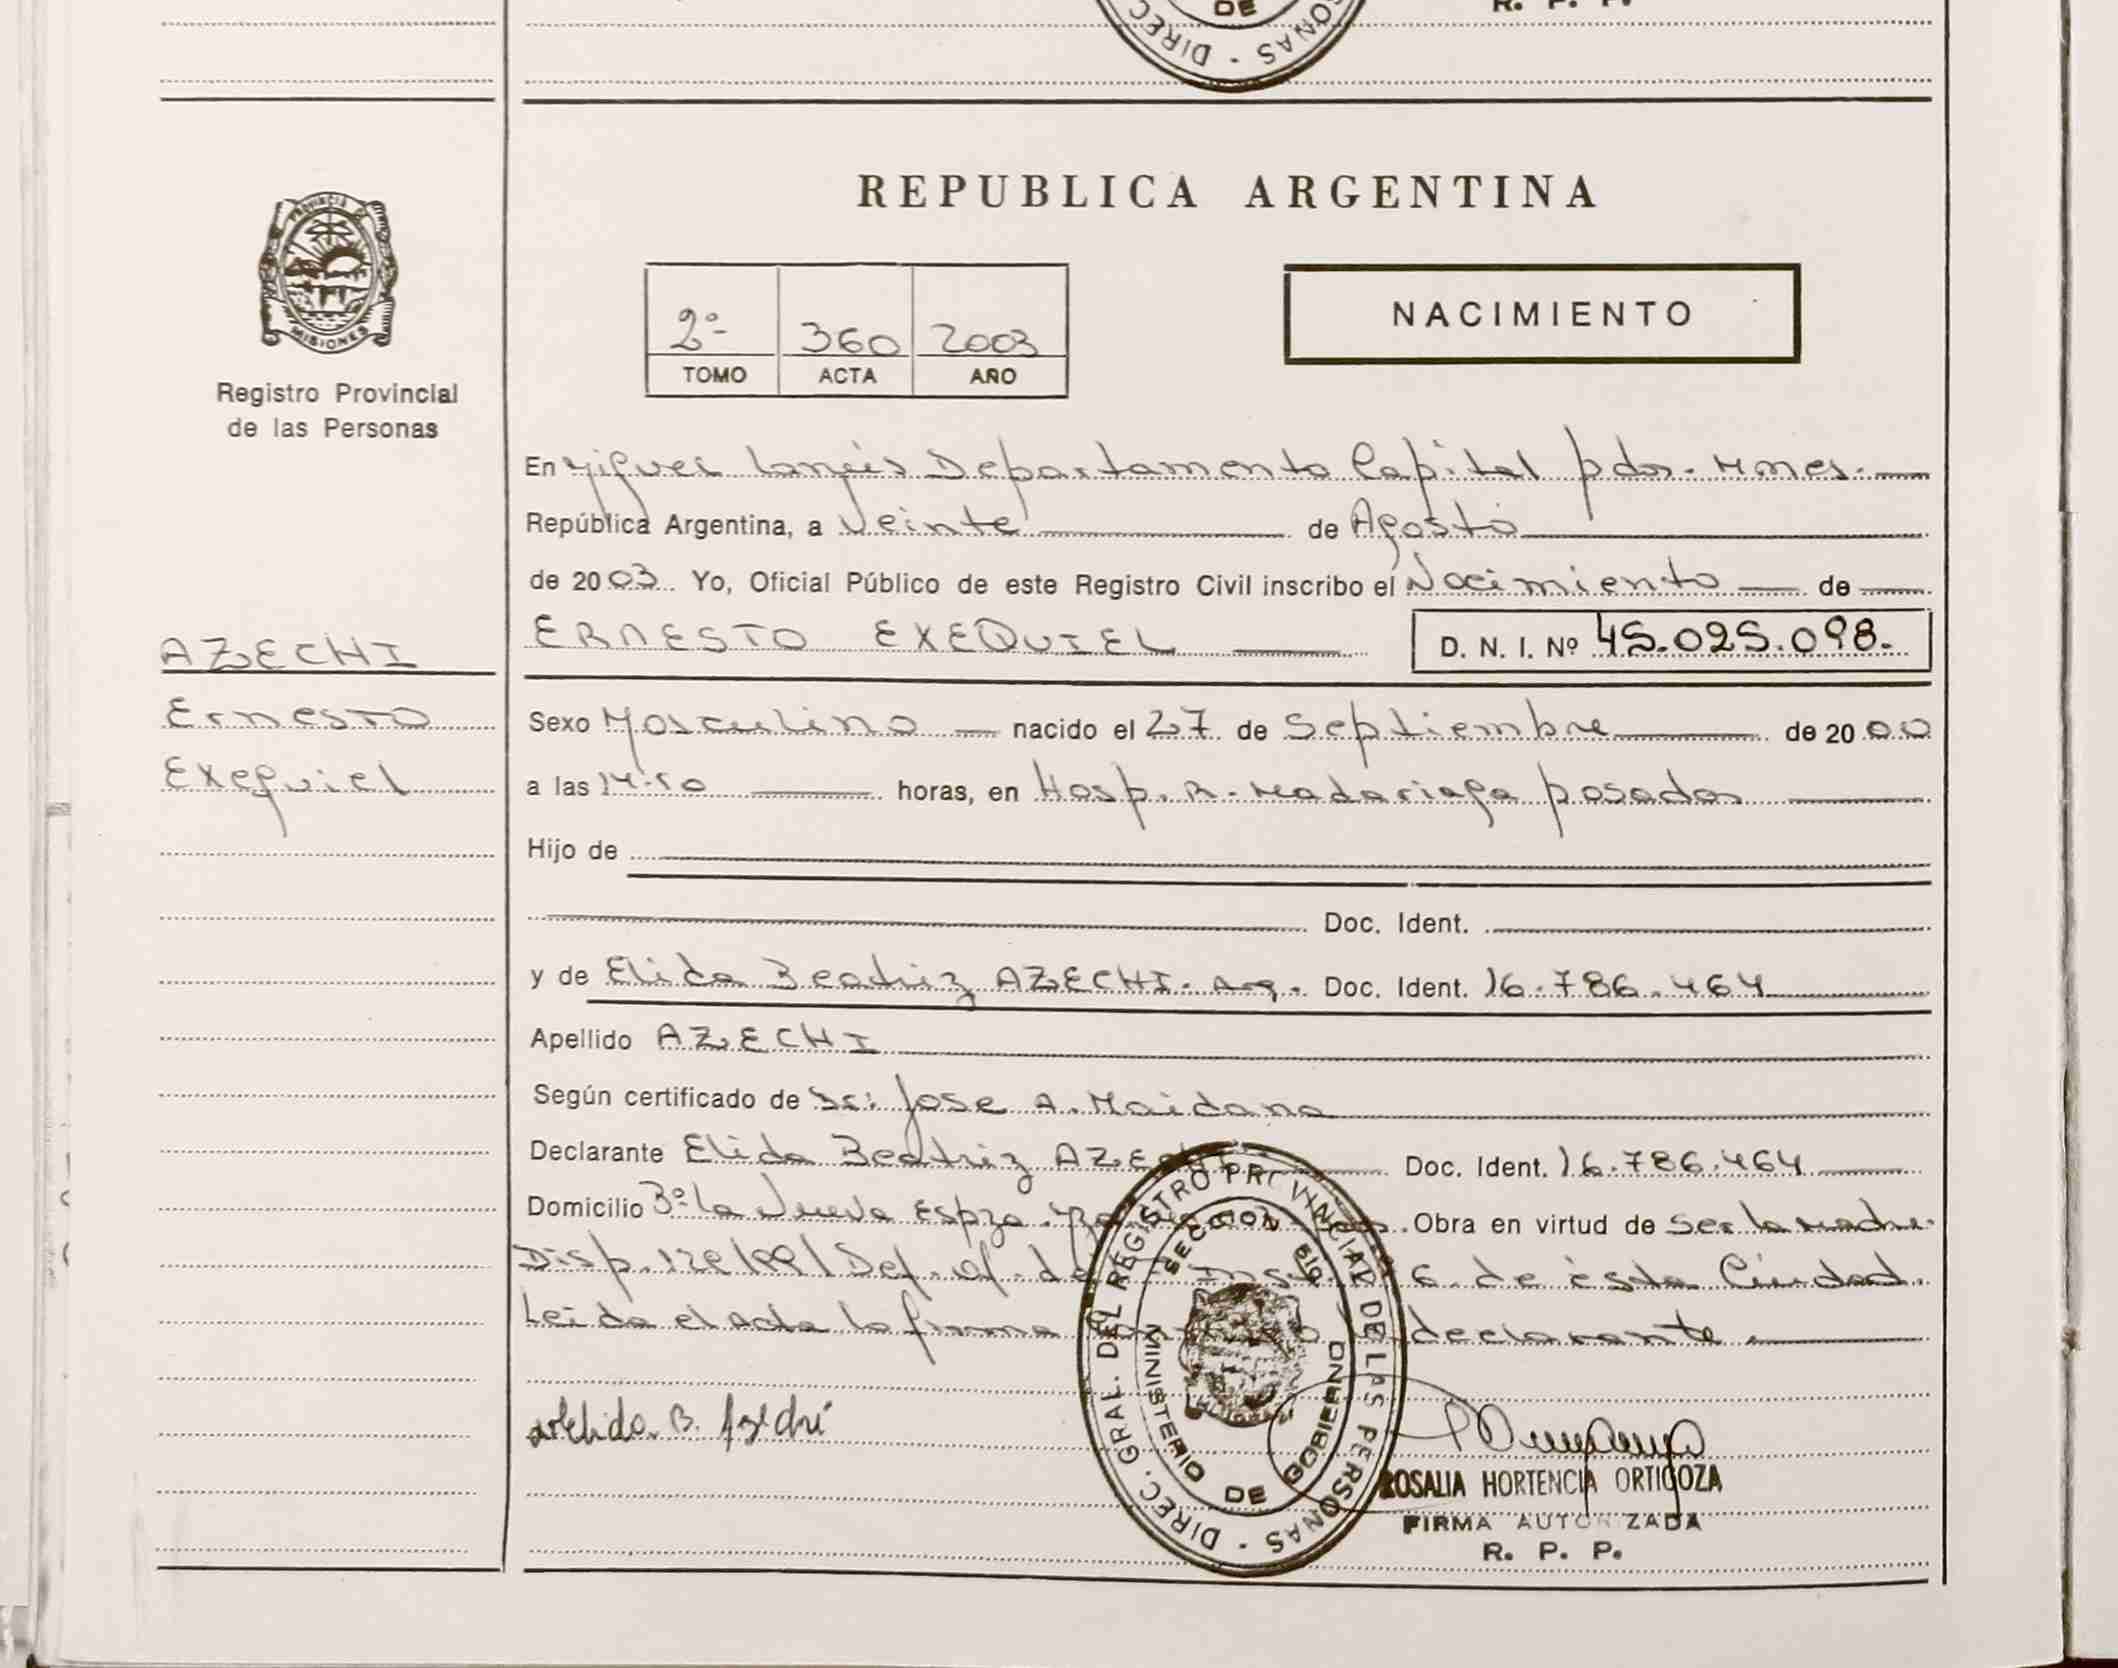 DIREC. SONAS DE
R. P. P.
PROVINCIA DE MISIONES
Registro Provincial
de las Personas
AZECHI
Ernesto
Exequiel
REPUBLICA ARGENTINA
2º 360 2003
TOMO ACTA AÑO
NACIMIENTO
En Miguel Lanús Departamento Capital pdas. Mnes.
República Argentina, a Veinte de Agosto
de 2003. Yo, Oficial Público de este Registro Civil inscribo el Nacimiento de
ERNESTO EXEQUIEL D. N. I. Nº 45.025.098.
Sexo Masculino nacido el 27 de Septiembre de 2000
a las horas, en Hosp. R. Madariaga posadas
Hijo de
Doc. Ident.
y de Elida Beatriz AZECHI. Arg. Doc. Ident. 16.786.464
Apellido AZECHI
Según certificado de Dr: Jose A. Maidana
Declarante Elida Beatriz AZECHI Doc. Ident. 16.786.464
Domicilio Bº la Nueva Espza. Obra en virtud de Ser la Madre.
Disp. Def. of. de 6. de ésta Ciudad.
Leida el acta la firma declarante
Elida. B. Azechi
DIREC. GRAL. DEL REGISTRO PROVINCIAL DE LAS PERSONAS
MINISTERIO DE GOBIERNO
SECCION
ROSALIA HORTENCIA ORTIGOZA
FIRMA AUTORIZADA
R. P. P.